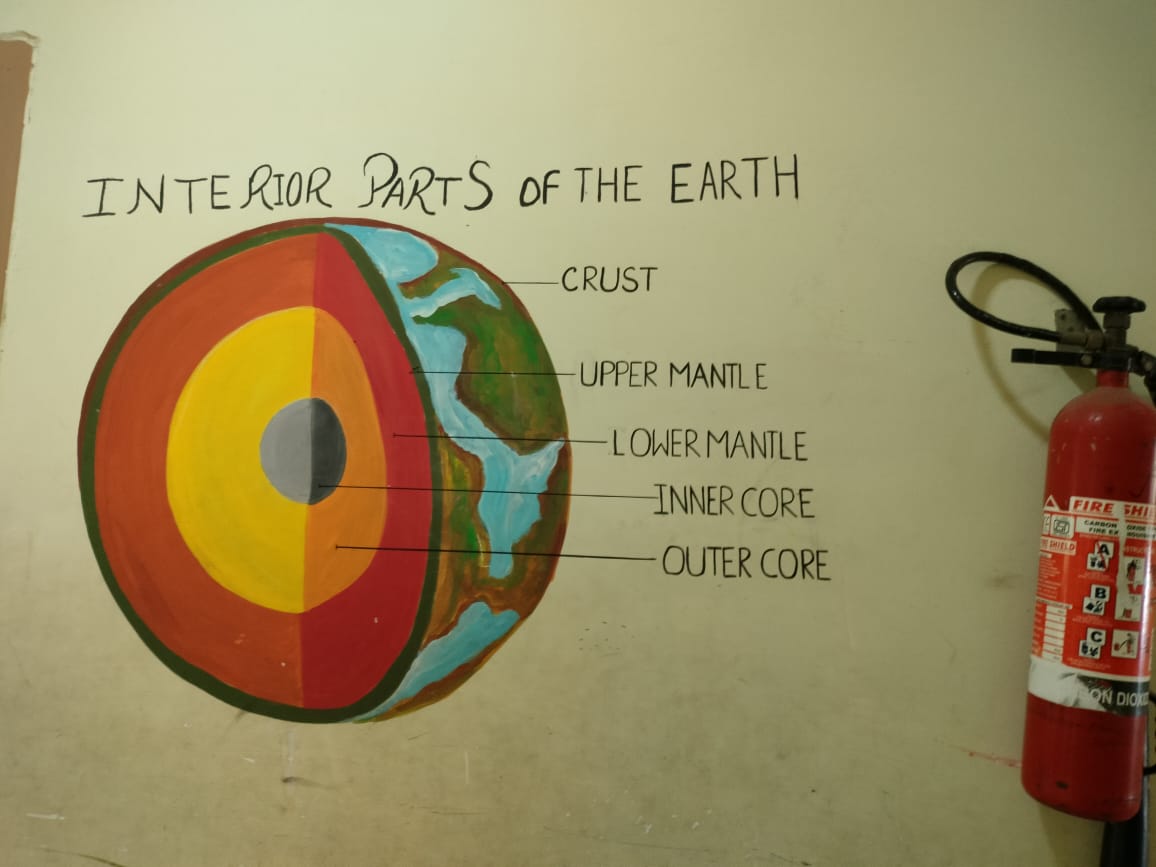 INTERIOR PARTS OF THE EARTH
CRUST
UPPER MANTLE
LOWER MANTLE
INNER CORE
OUTER CORE
FIRE SHI
CARBON
FIRE EX
SHIELD
A
B
C
ON DIOXI